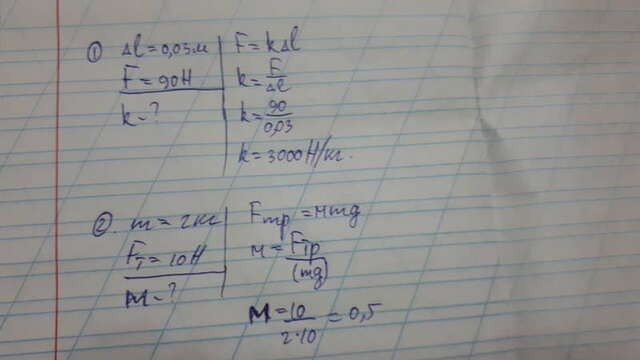 ① Δl = 0,03м
F = 90Н
k - ?
F = kΔl
k = F/Δl
k = 90/0,03
k = 3000 Н/м.
② m = 2кг
Fт = 10Н
M - ?
Fтр = Mmg
M = Fтр/(mg)
M = 10/2·10 = 0,5